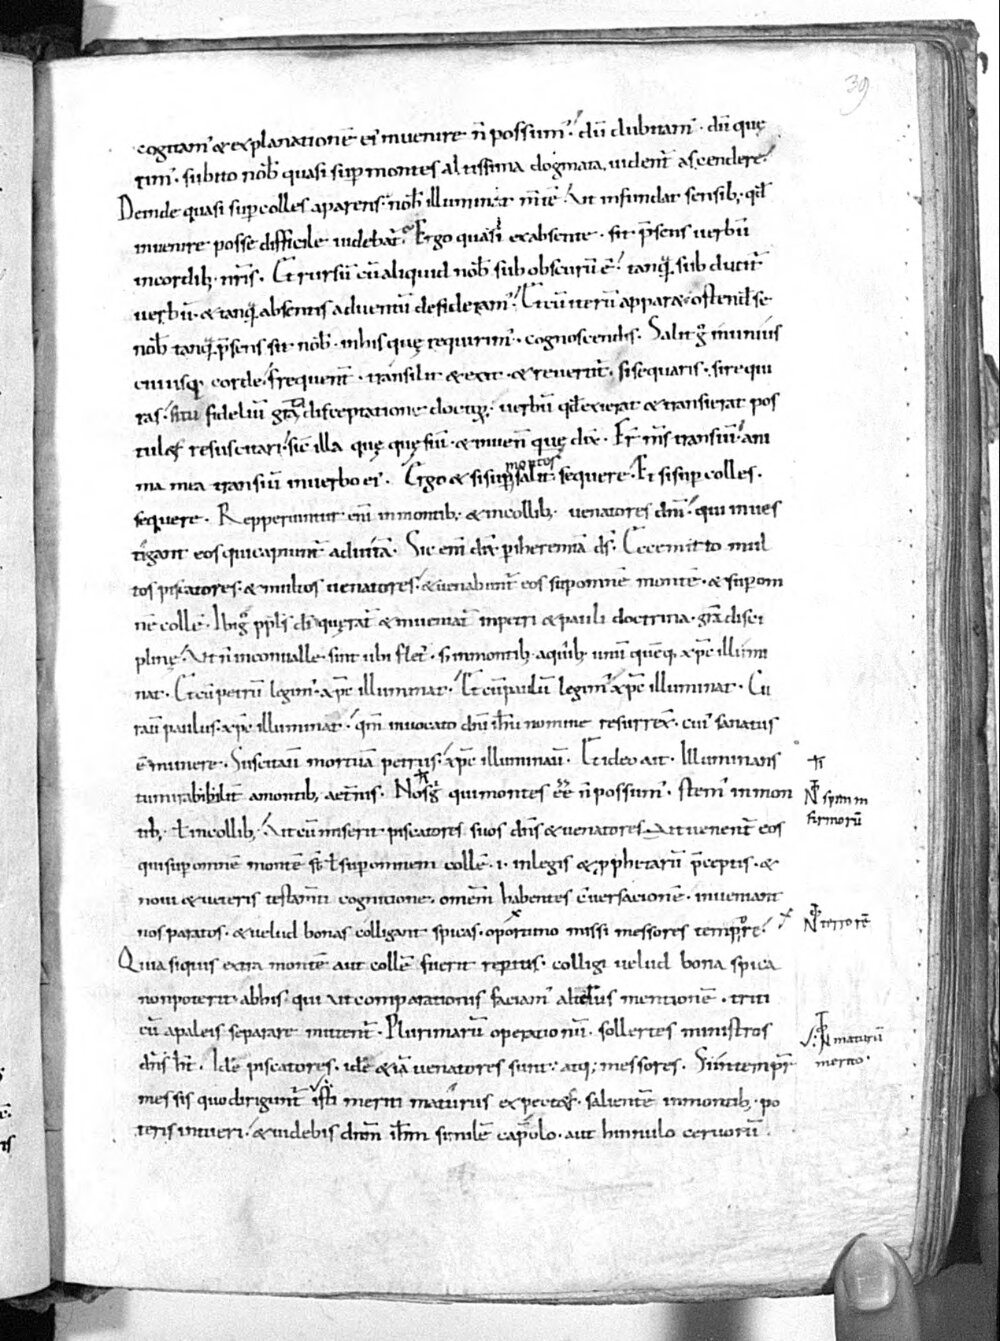 39
cogitam' & explanationē ei' inuenire n̄ possum'. dū dubitam'. dū quę
rim'. subito nob̄ quasi sup montes altissima dogmata uident' ascendere.
Deinde quasi sup colles aparens nob̄ illuminat m̄tē. Ut infundat sensib; qđ
inuenire posse difficile uidebat'. Ergo quasi ex absente. fit p̄sens uerbū
in cordib; nr̄is. Et rursū cū aliquid nob̄ sub obscurū ē. tanq̄ sub ducit'
uerbū. & tanq̄ absentis aduentū desideram'. Et cū iterū apparȩ ostendit se
nob̄ tanq̄ p̄sens sit nob̄. in his quę requirim'. cognoscendis. Salit g̊ in unius
cuiusq; corde. frequent'. transilit & exit. & reuertit'. si sequaris. si requi
ras. si tu fideliū gr̄a disceptatione doctiȝ. uerbū qđ exierat & transierat pos
tulas resuscitari. sic illa quę quęsiuit & inuen̄ quę dix̄. Et m̄s transiuit. ani
ma mea transiuit in uerbo ei'. Ergo & si sup montes salit. sequere. Et si sup colles.
sequere. Repperiuntur eni in montib; & in collib; uenatores dn̄i. qui inues
tigant eos qui capiunt' ad uitā. Sic eni dix̄ p iheremiā ds̄. Ecce mitto mul
tos piscatores. & multos uenatores. & uenabunt' eos sup omnē montē. & sup om
nē collē. Ibi g̊ ppl's dn̄i quęrat' & inueniat' in petri & pauli doctrina. gr̄a disci
plinę. Ut n̄ in conualle. sint ubi flet'. s; in montib; a quib; unū quēq; xp̄c illumi
nat. Et cū petrū legim'. xp̄c illuminat. Et cū paulū legim'. xp̄c illuminat. Cu
rauit paulus. xp̄c illuminat. qm̄ inuocato dn̄i ihū nomine resurrex̄. cui' sanatus
ē munere. Suscitauit mortuā petrus. xp̄c illuminauit. Et ideo ait. Illuminans
tu mirabibilit' a montib; aetnis. Nos g̊ qui montes eē n̄ possum'. stem' in mon
tib; ł in collib; Ut cū miserit piscatores suos dn̄s & uenatores. Ut uenerit eos
qui sup omnē montē st̄ ł sup omnem collē. i. in legis & pphetarū p̄ceptis. &
noui & ueteris testamti cognitione. omēm habentes c̄uersationē. inueniant
nos paratos. & uelud bonas colligant spicas. oportuno missi messores tempore.
Quia siquis extra montē aut collē fuerit reptus. colligi uelud bona spica
non poterit. ab his. qui ut comparationis faciam' alterius mentionē. triti
cū a paleis separare mittent'. Plurimarū operationū. sollertes ministros
dn̄s ht̄. Idē piscatores. idē & iā uenatores sunt. atq; messores. Si in tempr̄
messis quo dirigunt' isti meriti maturus expectes. salientē in montib; po
teris intueri. & uidebis dn̄m ihm similē capolo. aut hinnulo ceruorū.
N spm in
firmorū
N terrorē
maturū
merito.